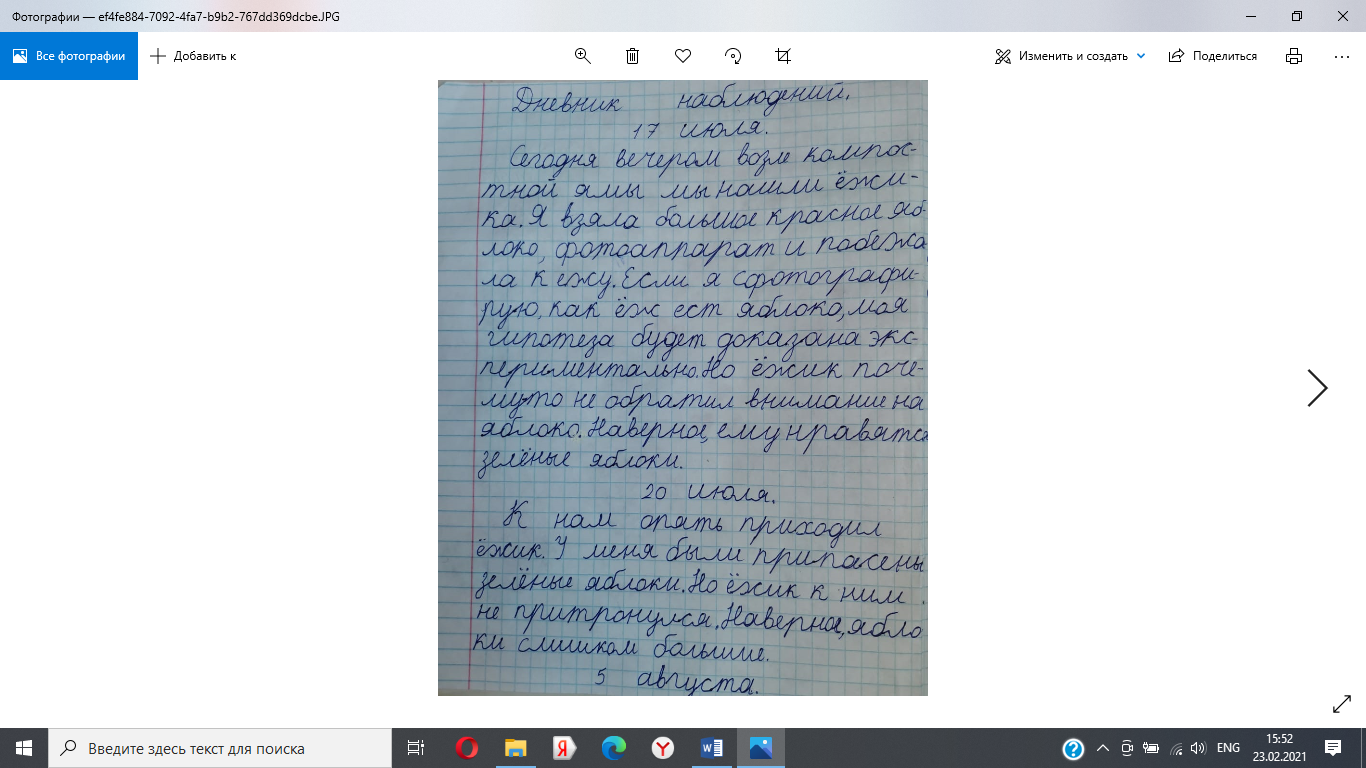 Фотографии — ef4fe884-7092-4fa7-b9b2-767dd369dcbe.JPG
Все фотографии
Добавить к
Изменить и создать
Поделиться
Дневник наблюдений.
17 июля.
Сегодня вечером возле компос-
тной ямы мы нашли ёжи-
ка. Я взяла большое красное яб-
локо, фотоаппарат и побежа
ла к ежу. Если я сфотографи-
рую, как ёж ест яблоко, моя
гипотеза будет доказана экс-
периментально. Но ёжик поче-
му-то не обратил внимание на
яблоко. Наверное, ему нравятся
зелёные яблоки.
20 июля.
К нам опять приходил
ёжик. У меня были припасены
зелёные яблоки. Но ёжик к ним
не притронулся. Наверное, ябло
ки слишком большие.
5 августа.
Введите здесь текст для поиска
ENG
15:52
23.02.2021